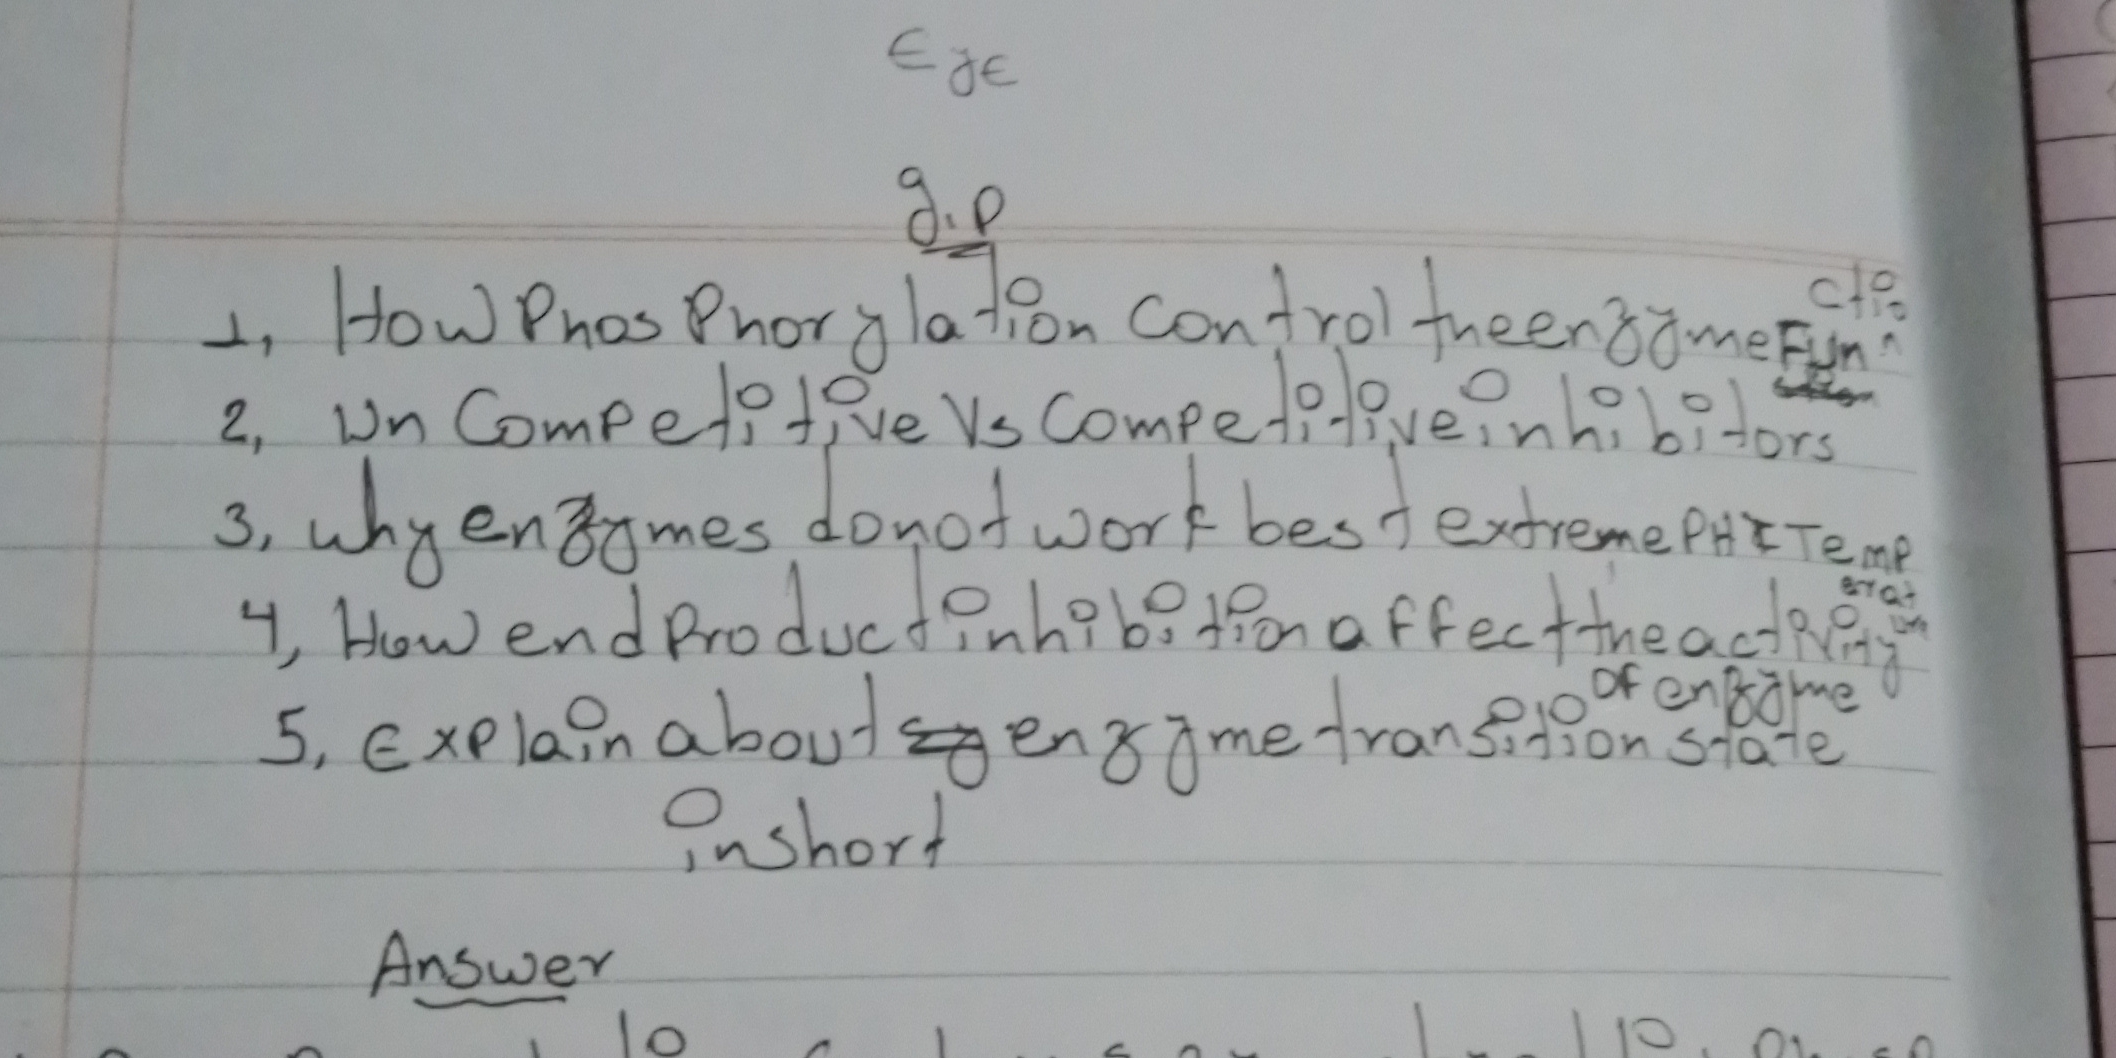 EyE
g.p
1, How Phosphorylation control the enzyme Function
2, Un Competitive Vs Competitive inhibitors
3, Why enzymes do not work best extreme PH & Temperature
4, How end product inhibition affect the activity of enzyme
5, Explain about enzyme transition state
in short
Answer